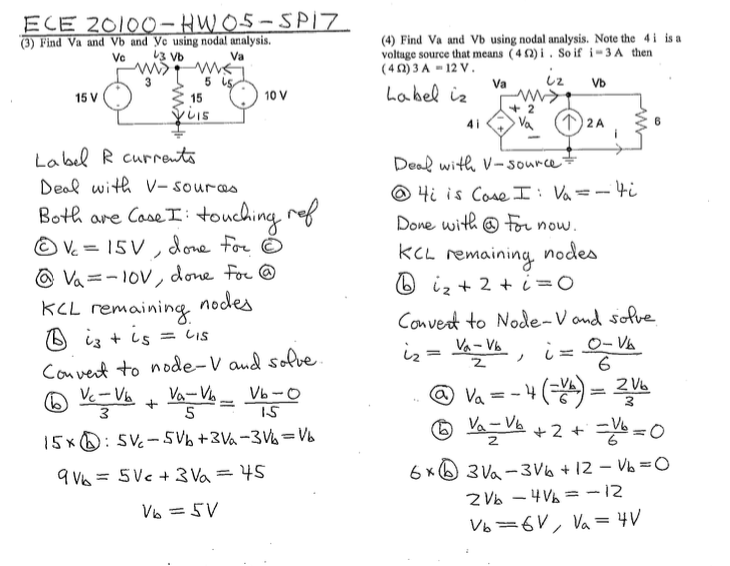 ECE 20100-HW05-SP17
(3) Find Va and Vb and Vc using nodal analysis.
Vc i3 Vb Va
3 5 i5
15 V 15 10 V
i15
Label R currents
Deal with V-sources
Both are Case I: touching ref
ⓒ Vc = 15V, done for ⓒ
ⓐ Va = -10V, done for ⓐ
KCL remaining nodes
ⓑ i3 + i5 = i15
Convert to node-V and solve.
ⓑ Vc-Vb/3 + Va-Vb/5 = Vb-0/15
15×ⓑ: 5Vc-5Vb+3Va-3Vb=Vb
9Vb = 5Vc + 3Va = 45
Vb = 5V
(4) Find Va and Vb using nodal analysis. Note the 4 i is a
voltage source that means (4 Ω) i . So if i = 3 A then
(4 Ω) 3 A = 12 V.
Label i2
Va i2 Vb
+ 2
4 i + Va 2 A 6
- i
Deal with V-source
ⓐ 4i is Case I: Va = -4i
Done with ⓐ for now.
KCL remaining nodes
ⓑ i2 + 2 + i = 0
Convert to Node-V and solve
i2 = Va-Vb/2 , i = 0-Vb/6
ⓐ Va = -4(-Vb/6) = 2Vb/3
ⓑ Va-Vb/2 + 2 + -Vb/6 = 0
6×ⓑ 3Va-3Vb+12-Vb=0
2Vb - 4Vb = -12
Vb = 6V, Va = 4V